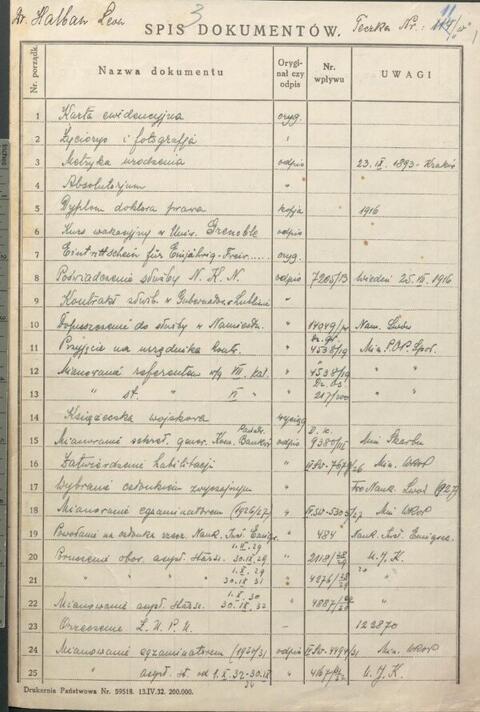 Dr. Halban Leon
3
SPIS DOKUMENTÓW.
Teczka Nr.:
Nr. porządk.
Nazwa dokumentu
Orygi-
nał czy
odpis
Nr.
wpływu
UWAGI
1 Karta ewidencyjna oryg.
2 Życiorys i fotografja "
3 Metryka urodzenia odpis 23.IX.1893 - Kraków
4 Absolutorjum "
5 Dyplom doktora prawa kopja 1916
6 Kurs wakacyjny w Uniw. Grenoble odpis
7 Eintrittschein für Einjährig-Freiw..... oryg.
8 Poświadczenie służby N.K.N. odpis 7205/13 Wiedeń 25.III.1916
9 Kontrakt służb. w Gubernator. Lublin "
10 Dopuszczenie do służby w Namiestn. " 14049/ Nam. Lwów
11 Przyjęcie na urzędnika kontr. " 4538/19 Min. P.O.P. Społ.
12 Mianowanie referentem w/g VIII. kat. " 4538/19 " "
13 " st. " " 217/200 " "
14 Książeczka wojskowa wyciąg
15 Mianowanie sekret. gener. Kom. Bankowej odpis 9380/III Min. Skarbu
16 Zatwierdzenie habilitacji " Min. WROP
17 Wybranie członkiem zwyczajnym " Tow. Nauk. Lwów (927)
18 Mianowanie egzaminatorem (1926/27) " IV.SW-5303/27 Min. WROP
19 Powołanie na członka rzecz. Nauk. Inst. Emigr. " 484 Nauk. Inst. Emigrac.
20 1.X.29 30.IX.29 " 2118/ U.J.K.
21 " " " 1.X.29 30.IX.31 " 4276/ "
22 Mianowanie asyst. starsz. 1.X.30 30.IX.32 " 4887/ "
23 Orzeczenie Z.U.P.U. — 122870
24 Mianowanie egzaminatorem (1930/31) odpis 4494/31 Min. WROP
25 " asyst. st. od 1.X.32-30.IX " 4167/ U.J.K.
Drukarnia Państwowa Nr. 59518. 13.IV.32. 200.000.